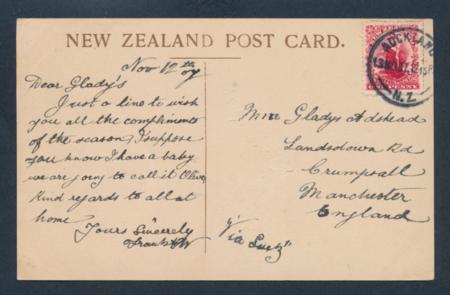 NEW ZEALAND POST CARD.
AUCKLAND
N.Z.
ONE PENNY
Nov 12th 07
Dear Glady's
Just a line to wish
you all the compliments
of the season, I suppose
you know I have a baby
we are going to call it Olive,
Kind regards to all at
home
Yours Sincerely
Frank
Miss Gladys Adshead
Landsdown Rd
Crumpsall
Manchester
England
"Via Suez"